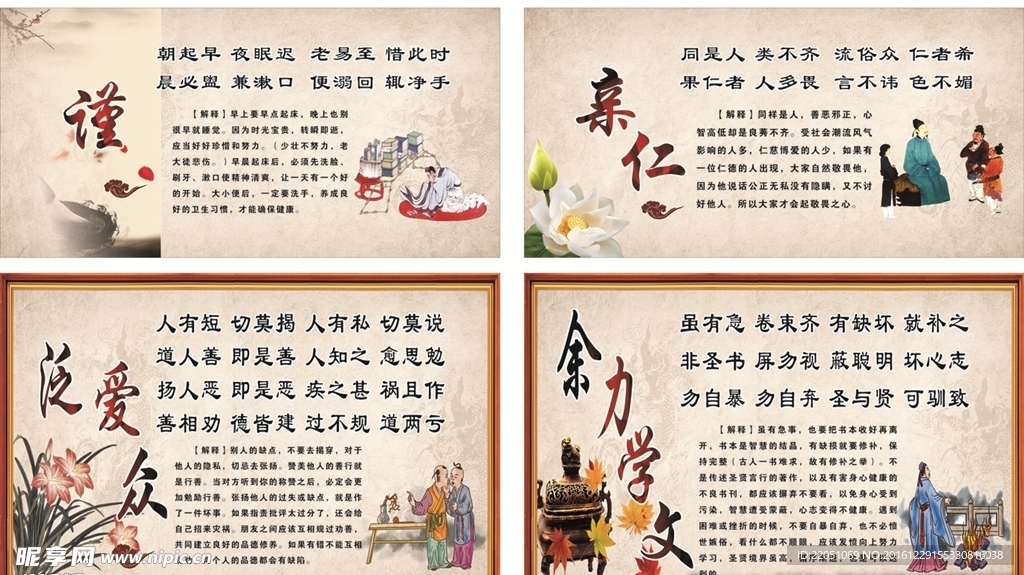 谨
朝起早 夜眠迟 老易至 惜此时
晨必盥 兼漱口 便溺回 辄净手
【解释】早上要早点起床，晚上也别
很早就睡觉。因为时光宝贵，转瞬即逝，
应当好好珍惜和努力。（少壮不努力，老
大徒悲伤。）早晨起床后，必须先洗脸、
刷牙、漱口使精神清爽，让一天有一个好
的开始。大小便后，一定要洗手，养成良
好的卫生习惯，才能确保健康。
亲仁
同是人 类不齐 流俗众 仁者希
果仁者 人多畏 言不讳 色不媚
【解释】同样是人，善恶邪正，心
智高低却是良莠不齐。受社会潮流风气
影响的人多，仁慈博爱的人少，如果有
一位仁德的人出现，大家自然敬畏他，
因为他说话公正无私没有隐瞒，又不讨
好他人。所以大家才会起敬畏之心。
泛爱众
人有短 切莫揭 人有私 切莫说
道人善 即是善 人知之 愈思勉
扬人恶 即是恶 疾之甚 祸且作
善相劝 德皆建 过不规 道两亏
【解释】别人的缺点，不要去揭穿，对于
他人的隐私，切忌去张扬。赞美他人的善行就
是行善。当对方听到你的称赞之后，必定会更
加勉励行善。张扬他人的过失或缺点，就是作
了一件坏事。如果指责批评太过分了，还会给
自己招来灾祸。朋友之间应该互相规过劝善，
共同建立良好的品德修养。如果有错不能互相
个人的品德都会有缺陷。
余力学文
虽有急 卷束齐 有缺坏 就补之
非圣书 屏勿视 蔽聪明 坏心志
勿自暴 勿自弃 圣与贤 可驯致
【解释】虽有急事，也要把书本收好再离
开，书本是智慧的结晶，有缺损就要修补，保
持完整（古人一书难求，故有修补之举）。不
是传述圣贤言行的著作，以及有害身心健康的
不良书刊，都应该摒弃不要看，以免身心受到
污染，智慧遭受蒙蔽，心志变得不健康。遇到
困难或挫折的时候，不要自暴自弃，也不必愤
世嫉俗，看什么都不顺眼，应该发愤向上努力
学习，圣贤境界虽高，
到的。
昵享网 www.nipic.cn
ID:22051069 NO:20161229155330810038